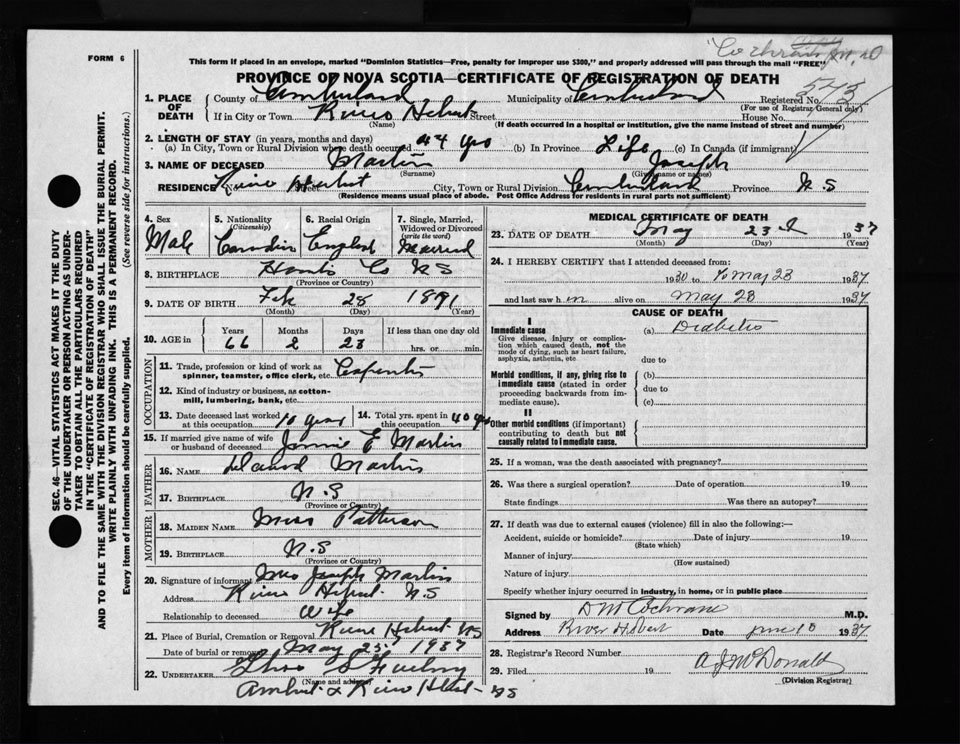 FORM 6
This form if placed in an envelope, marked "Dominion Statistics—Free, penalty for improper use $300," and properly addressed will pass through the mail "FREE"
PROVINCE OF NOVA SCOTIA—CERTIFICATE OF REGISTRATION OF DEATH
1. PLACE OF DEATH County of Cumberland Municipality of Cumberland Registered No. 543
(For use of Registrar General only)
If in City or Town River Hebert Street House No.
(Name) (If death occurred in a hospital or institution, give the name instead of street and number)
2. LENGTH OF STAY (in years, months and days)
(a) In City, Town or Rural Division where death occurred 44 yrs (b) In Province Life (c) In Canada (if immigrant)
3. NAME OF DECEASED Martin Joseph
(Surname) (Given name or names)
RESIDENCE No. River Hebert Street City, Town or Rural Division Cumberland Province N.S
(Residence means usual place of abode. Post Office Address for residents in rural parts not sufficient)
4. Sex Male
5. Nationality (Citizenship) Canadian
6. Racial Origin English
7. Single, Married, Widowed or Divorced (write the word) Married
8. BIRTHPLACE Hants Co N S
(Province or Country)
9. DATE OF BIRTH Feb 28 1871
(Month) (Day) (Year)
10. AGE in Years 66 Months 2 Days 23 If less than one day old hrs. or min.
OCCUPATION
11. Trade, profession or kind of work as spinner, teamster, office clerk, etc. Carpenter
12. Kind of industry or business, as cotton-mill, lumbering, bank, etc.
13. Date deceased last worked at this occupation 10 years
14. Total yrs. spent in this occupation 40 yrs
15. If married give name of wife or husband of deceased Jennie E Martin
FATHER
16. NAME David Martin
17. BIRTHPLACE N.S
(Province or Country)
MOTHER
18. MAIDEN NAME Miss Patterson
19. BIRTHPLACE N.S
(Province or Country)
20. Signature of informant Mrs Joseph Martin
Address River Hebert N.S
Relationship to deceased Wife
21. Place of Burial, Cremation or Removal River Hebert NS
Date of burial or removal May 25 1937
22. UNDERTAKER
(Name and address)
Amherst & River Hebert NS
MEDICAL CERTIFICATE OF DEATH
23. DATE OF DEATH May 23d 1937
(Month) (Day) (Year)
24. I HEREBY CERTIFY that I attended deceased from:
1930 to May 23 1937
and last saw him alive on May 23 1937
CAUSE OF DEATH
I
Immediate cause (a) Diabetes
Give disease, injury or complication which caused death, not the mode of dying, such as heart failure, asphyxia, asthenia, etc.
due to
Morbid conditions, if any, giving rise to immediate cause (stated in order proceeding backwards from immediate cause).
(b)
due to
(c)
II
Other morbid conditions (if important) contributing to death but not causally related to immediate cause.
25. If a woman, was the death associated with pregnancy?
26. Was there a surgical operation? Date of operation 19
State findings Was there an autopsy?
27. If death was due to external causes (violence) fill in also the following:—
Accident, suicide or homicide? Date of injury 19
(State which)
Manner of injury
(How sustained)
Nature of injury
Specify whether injury occurred in industry, in home, or in public place
Signed by D M Cochrane M.D.
Address River Hebert Date June 10 1937
28. Registrar's Record Number
29. Filed 19 A J McDonald
(Division Registrar)
SEC. 46—VITAL STATISTICS ACT MAKES IT THE DUTY
OF THE UNDERTAKER OR PERSON ACTING AS UNDERTAKER TO OBTAIN ALL THE PARTICULARS REQUIRED
IN THE "CERTIFICATE OF REGISTRATION OF DEATH"
AND TO FILE THE SAME WITH THE DIVISION REGISTRAR WHO SHALL ISSUE THE BURIAL PERMIT.
WRITE PLAINLY WITH UNFADING INK. THIS IS A PERMANENT RECORD.
Every item of information should be carefully supplied. (See reverse side for instructions.)